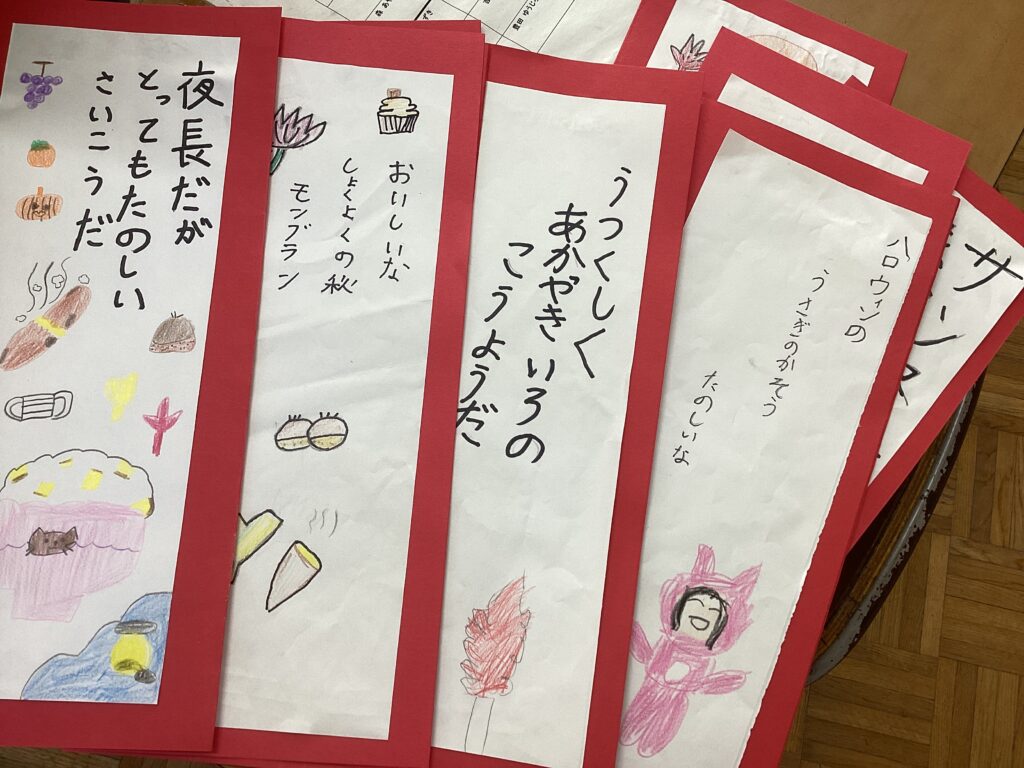 ハロウィンの
うさぎのかそう
たのしいな
うつくしく
あかやきいろの
こうようだ
おいしいな
しょくよくの秋
モンブラン
夜長だが
とってもたのしい
さいこうだ